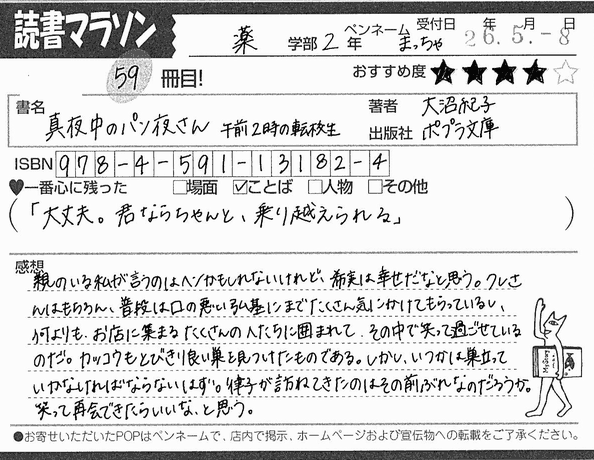 読書マラソン
薬 学部 2年 ペンネーム まっちゃ 受付日 年 月 日 26.5.-8
59 冊目! おすすめ度 ★★★★☆
書名 真夜中のパン屋さん 午前2時の転校生
著者 大沼紀子
出版社 ポプラ文庫
ISBN 978-4-591-13182-4
♥一番心に残った □場面 ☑ことば □人物 □その他
(「大丈夫。君ならちゃんと、乗り越えられる」)
感想
親のいる私が言うのはヘンかもしれないけれど、希実は幸せだなと思う。クレさ
んはもちろん、普段は口の悪い弘基にまでたくさん気にかけてもらっているし、
何よりも、お店に集まるたくさんの人たちに囲まれて、その中で笑って過ごせている
のだ。カッコウもとびきり良い巣を見つけたものである。しかし、いつかは巣立って
いかなければならないはず。律子が訪ねてきたのはその前ぶれなのだろうか。
笑って再会できたらいいな、と思う。
●お寄せいただいたPOPはペンネームで、店内で掲示、ホームページおよび宣伝物への転載をご了承ください。